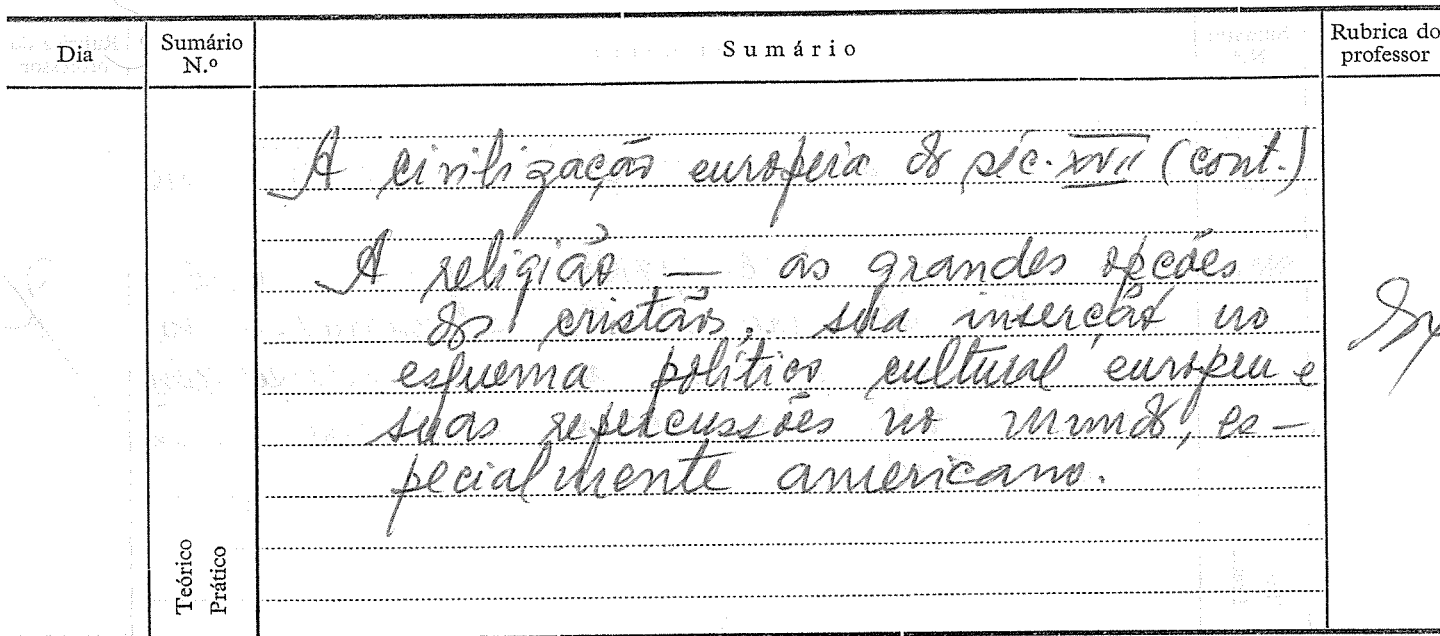 Dia
Sumário N.º
Sumário
Rubrica do professor
A civilização europeia do séc. XVII (cont.)
A religião — as grandes opções
dos cristãos, sua inserção no
esquema político cultural europeu e
suas repercussões no mundo, es-
pecialmente americano.
Teórico
Prático